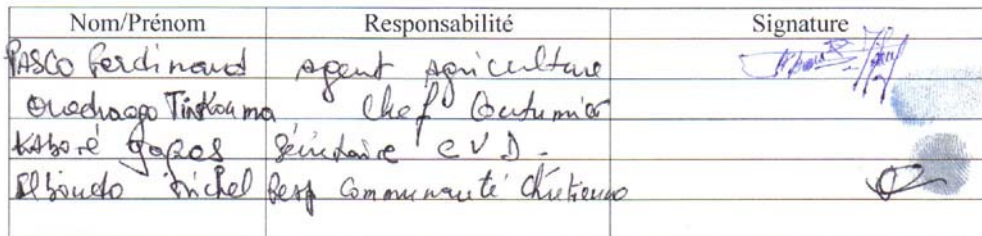 Nom/Prénom Responsabilité Signature
PASCO Ferdinand Agent Agriculture
Ouedraogo Tinkouma Chef Coutumier
Kaboré Sécrétaire CVD.
Michel Resp Communauté Chretienne